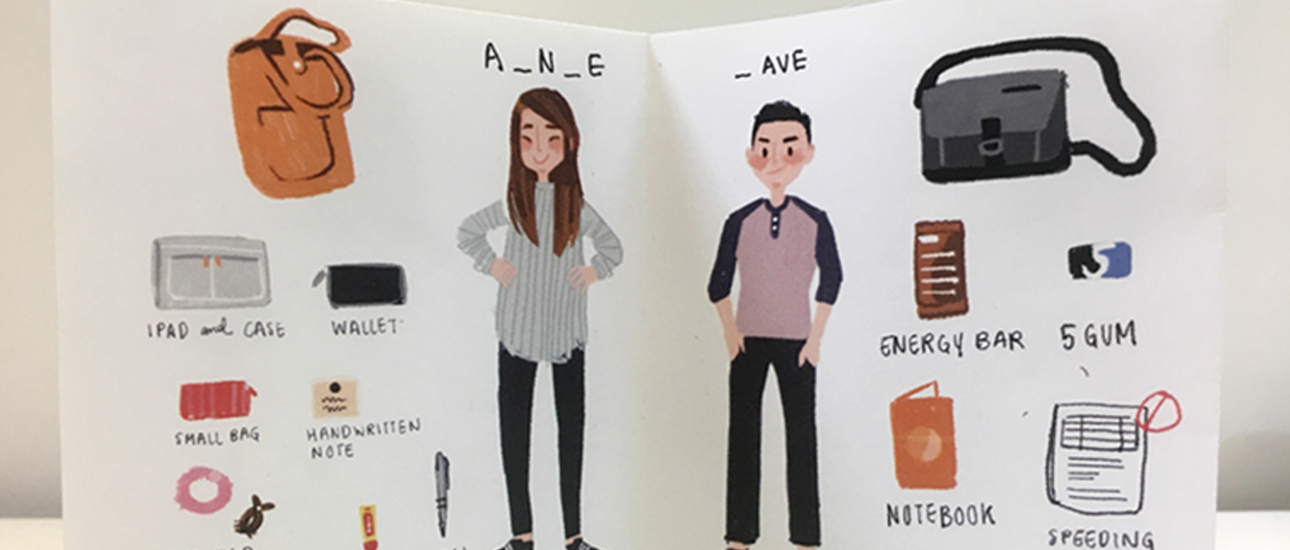 A _ N _ E
_ AVE
IPAD and CASE
WALLET
SMALL BAG
HANDWRITTEN
NOTE
ENERGY BAR
5 GUM
5
NOTEBOOK
SPEEDING